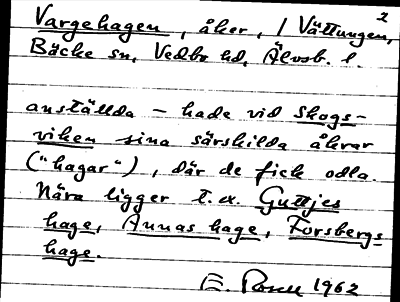 2
Vargehagen, åker, / Vättungen,
Bäcke sn, Vedbo hd, Älvsb. l.
anställda – hade vid Skogs-
viken sina särskilda åkrar
("hagar"), där de fick odla.
Nära ligger t.ex. Guttjes
hage, Annas hage, Forsbergs
hage.
E. 1962